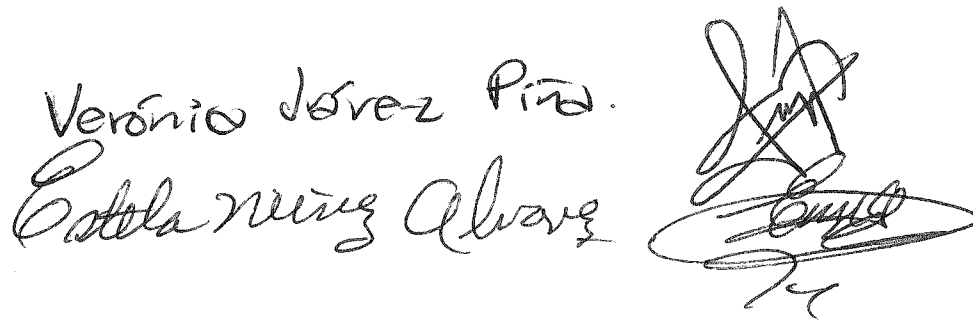 Verónia Járez Piña.
Estela Núñez Alvarez